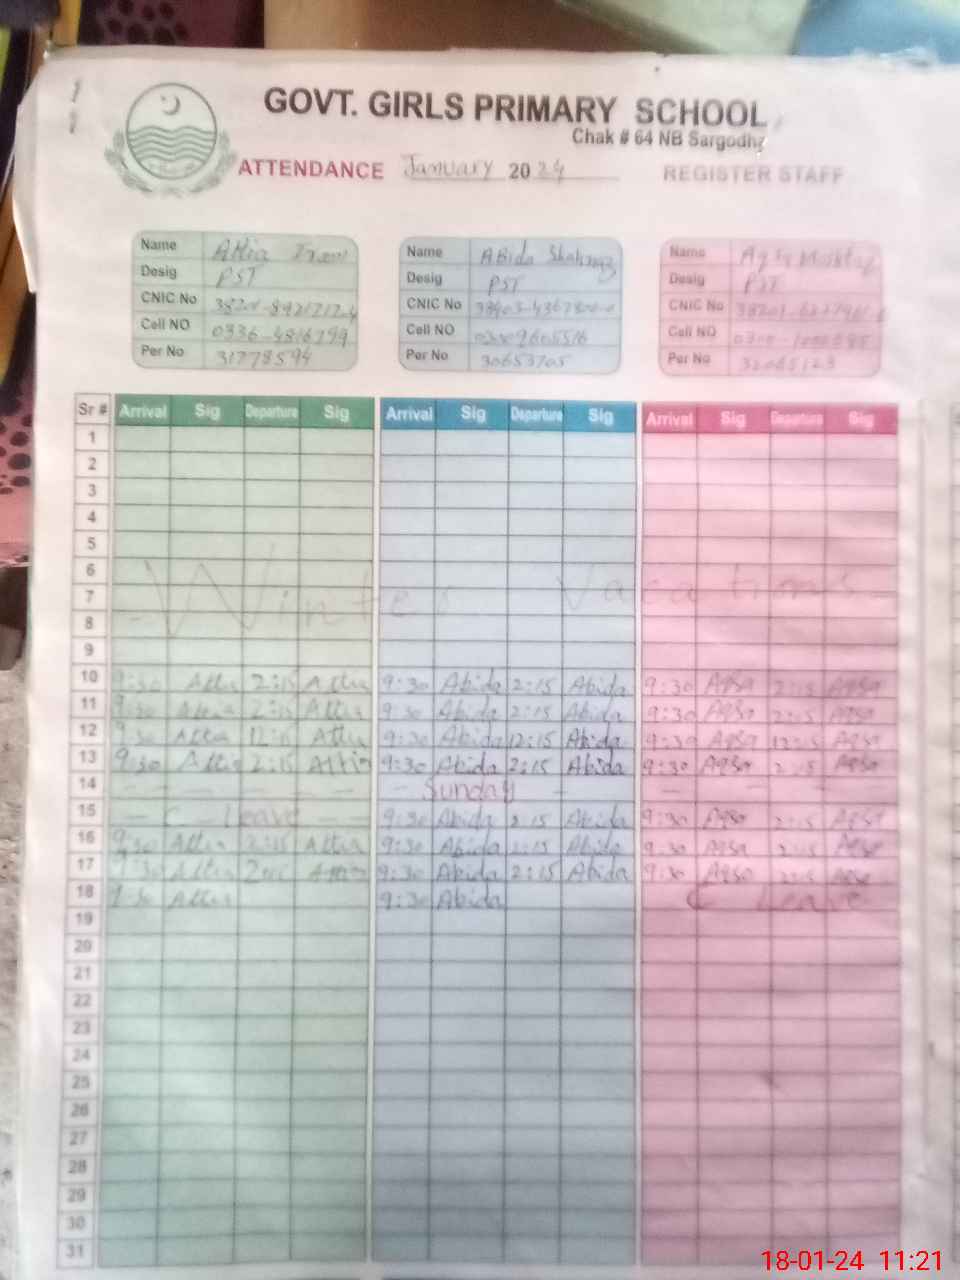 GOVT. GIRLS PRIMARY SCHOOL
Chak # 64 NB Sargodha
ATTENDANCE January 2024 REGISTER STAFF
Name Attia
Desig PST
CNIC No
Cell NO 0336-4816799
Per No 31778594
Name Abida Shahnaz
Desig PST
CNIC No
Cell NO
Per No 30653705
Name Aqsa Mushtaq
Desig PST
CNIC No
Cell NO
Per No
Sr # Arrival Sig Departure Sig Arrival Sig Departure Sig Arrival Sig Departure Sig
1
2
3
4
5
6
7 Winter Vacations
8
9
10 9:30 Attia 2:15 Attia 9:30 Abida 2:15 Abida 9:30 Aqsa 2:15 Aqsa
11 9:30 Attia 2:15 Attia 9:30 Abida 2:15 Abida 9:30 Aqsa 2:15 Aqsa
12 9:30 Attia 12:15 Attia 9:30 Abida 12:15 Abida 9:30 Aqsa 12:15 Aqsa
13 9:30 Attia 2:15 Attia 9:30 Abida 2:15 Abida 9:30 Aqsa 2:15 Aqsa
14 - - - - - - Sunday - - - - -
15 - C - Leave - - 9:30 Abida 2:15 Abida 9:30 Aqsa 2:15 Aqsa
16 9:30 Attia 2:15 Attia 9:30 Abida 2:15 Abida 9:30 Aqsa 2:15 Aqsa
17 9:30 Attia 2:15 Attia 9:30 Abida 2:15 Abida 9:30 Aqsa 2:15 Aqsa
18 9:30 Attia 9:30 Abida C Leave
19
20
21
22
23
24
25
26
27
28
29
30
31
18-01-24 11:21